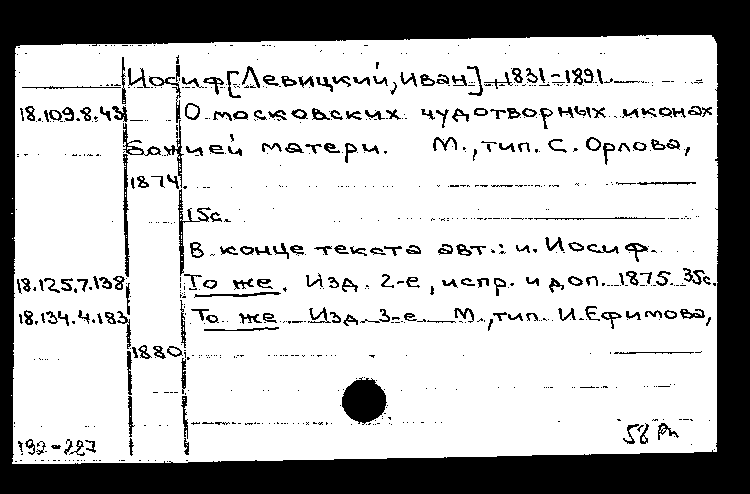 Иосиф [Левицкий, Иван], 1831-1891.
18.109.8.43 О московских чудотворных иконах
Божией матери. М., тип. С. Орлова,
1874.
15с.
В конце текста авт.: и. Иосиф.
18.125.7.138 То же. Изд. 2-е, испр. и доп. 1875. 35с.
18.134.4.183 То же Изд. 3-е. М., тип. И. Ефимова,
1880.
192-287